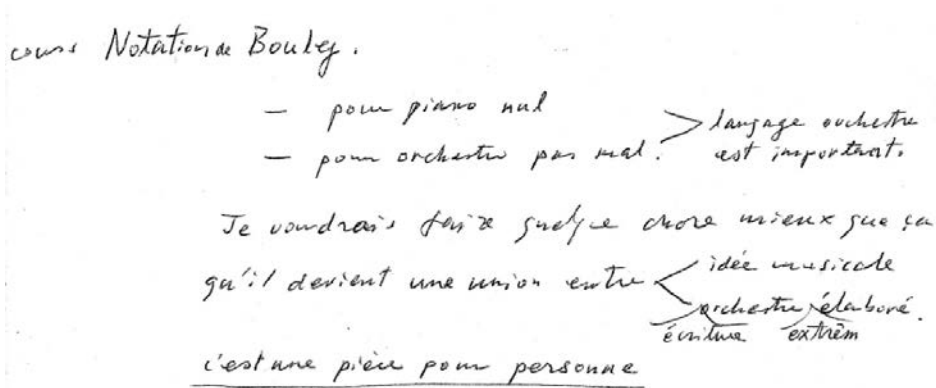 cours Notation de Boulez.
— pour piano nul
— pour orchestre pas mal. > langage orchestre
est important.
Je voudrais faire quelque chose mieux que ça
qu'il devient une union entre < idée musicale
orchestre élaboré.
écriture extrêm
c'est une pièce pour personne